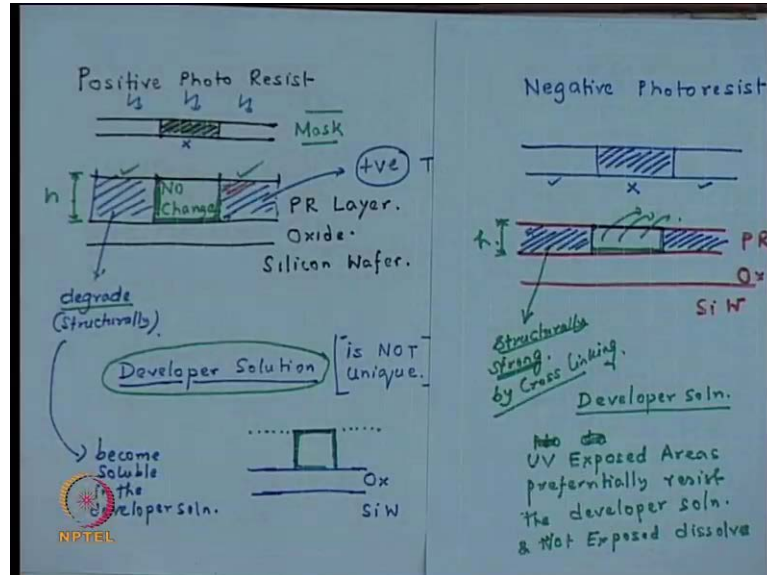 Positive Photo Resist
Mask
x
h
No
Change
+ve T
PR Layer.
Oxide.
Silicon Wafer.
degrade
(Structurally).
Developer Solution
is NOT
Unique.
become
soluble
in the
developer soln.
Ox
Si W
NPTEL
Negative Photoresist
x
h.
PR
Ox
Si W
Structurally
strong.
by Cross Linking.
Developer Soln.
UV Exposed Areas
prefernitially resist
the developer soln.
& Not Exposed dissolve